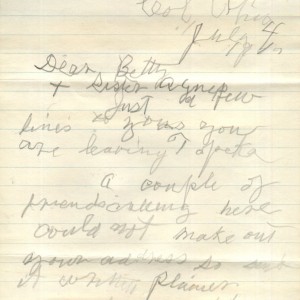 Col, Ohio
July 4
Dear Betty
+ Sister Agnes
Just a few
lines to you
are leaving
A couple of
friends here
could not make out
your address so
it written plainer